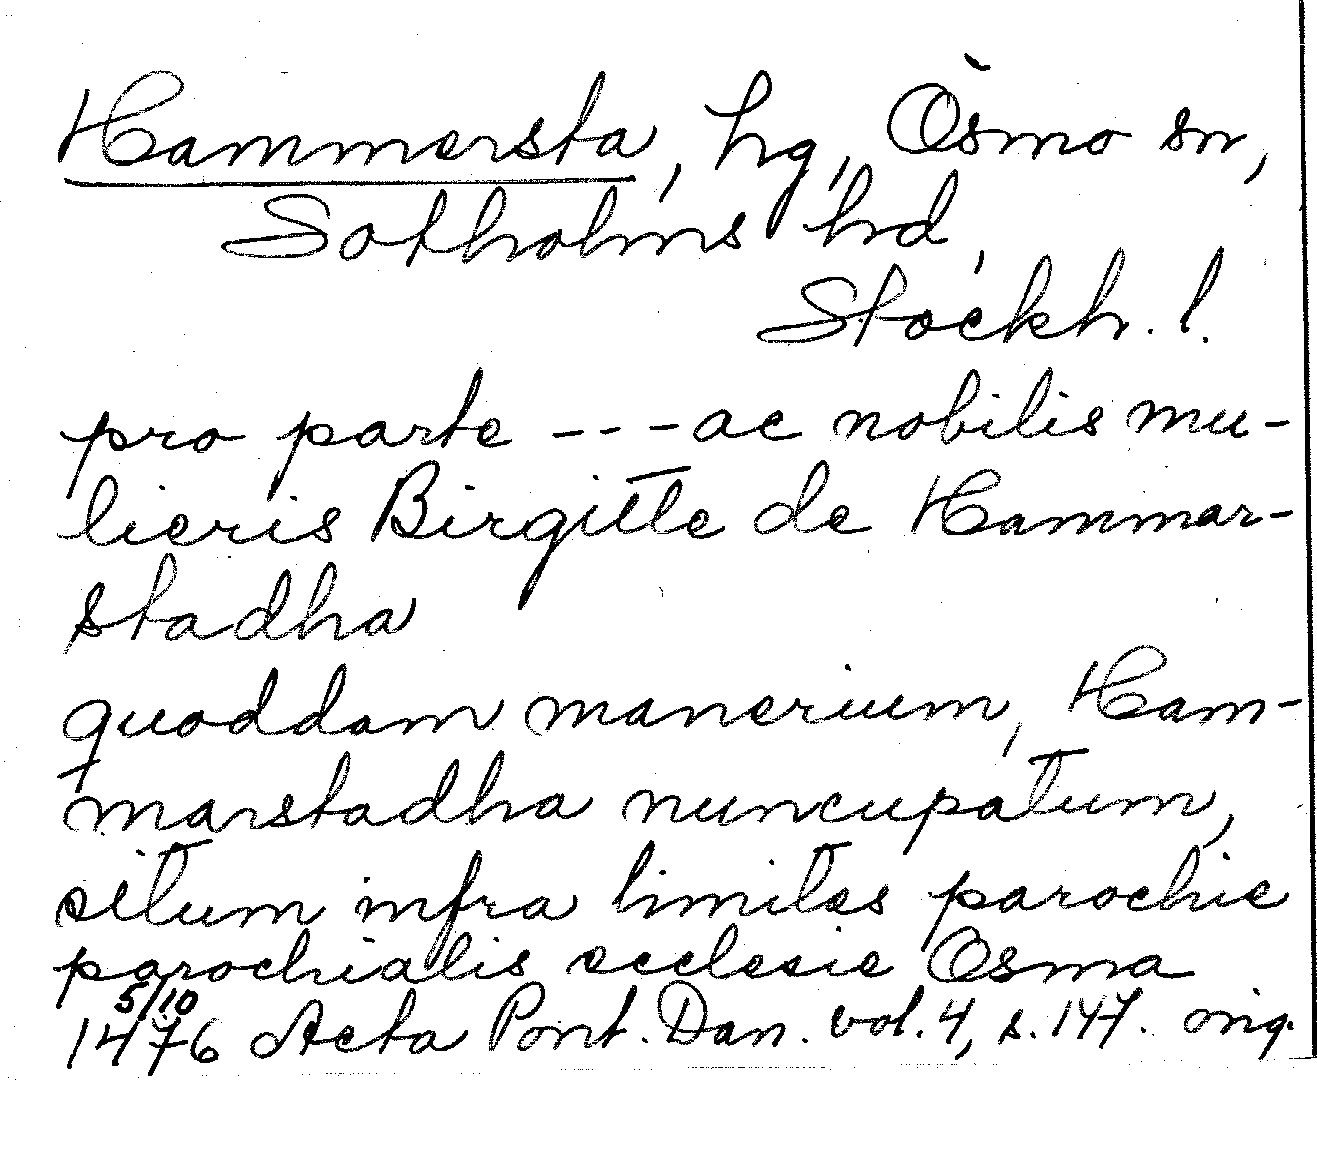 Hammersta, hg, Ösmo sn,
Sotholms hd,
Stockh. l.
pro parte --- ac nobilis mu-
lieris Birgitte de Hammar-
stadha
quoddam manerium, Ham-
marstadha nuncupatum,
situm infra limites parochie
parochialis ecclesie Osma
5/10
1476 Acta Pont. Dan. vol. 4, s. 147. orig.